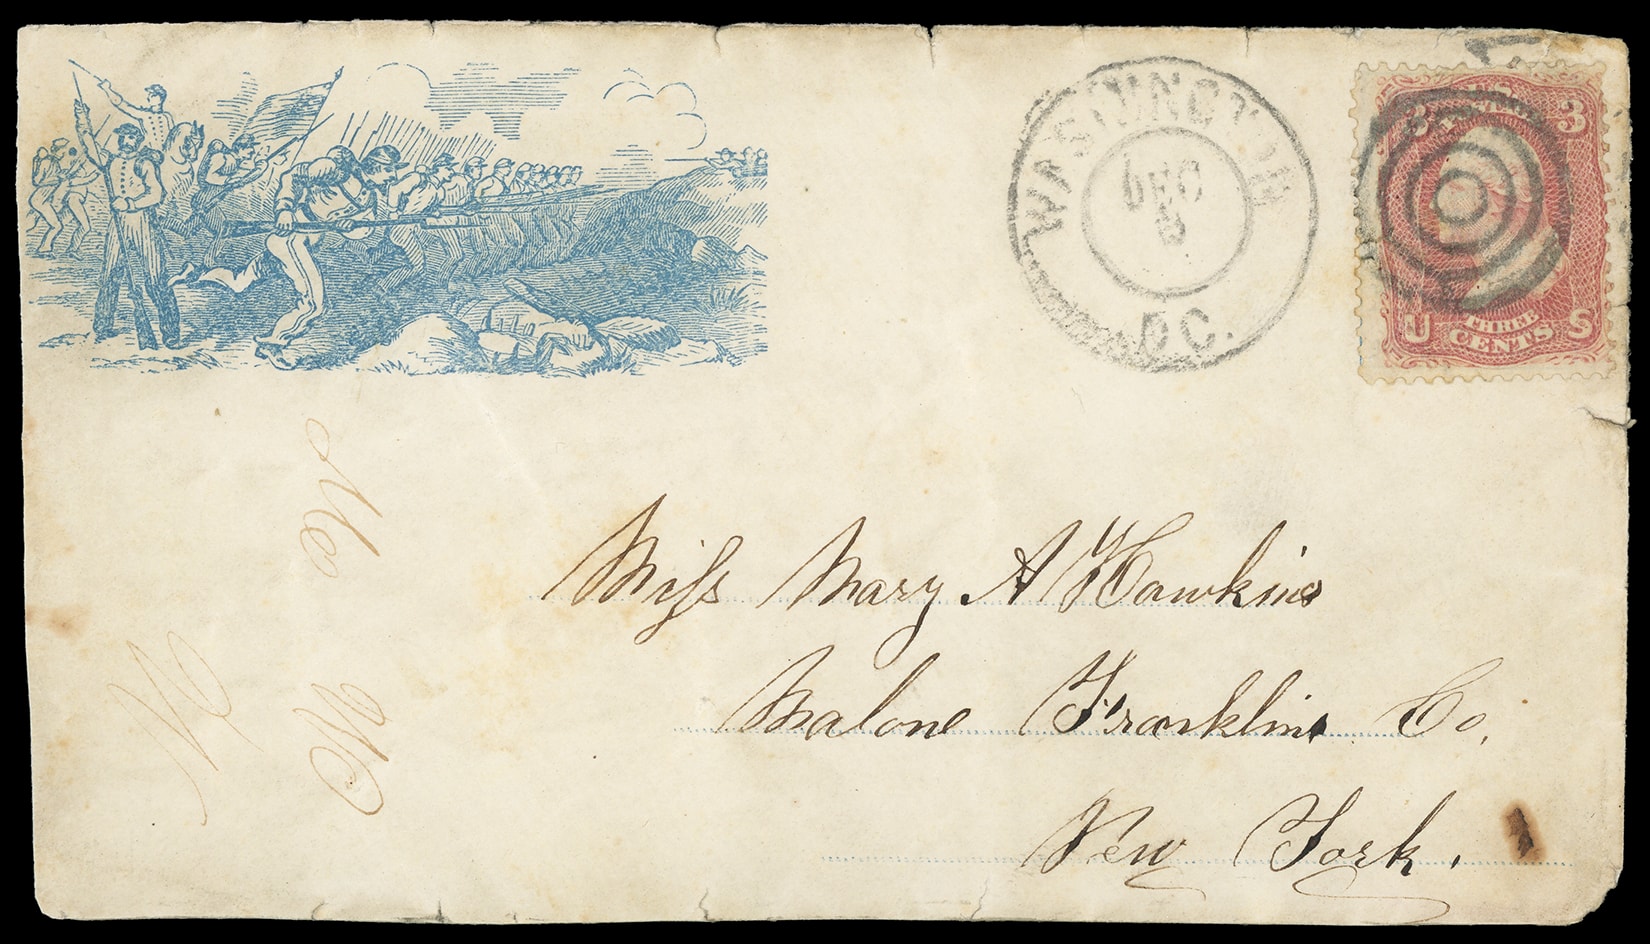 WASHINGTON
DEC
D.C.
3 3
U THREE S
CENTS
Miss Mary A Hawkins
Malone Franklin Co,
New York.